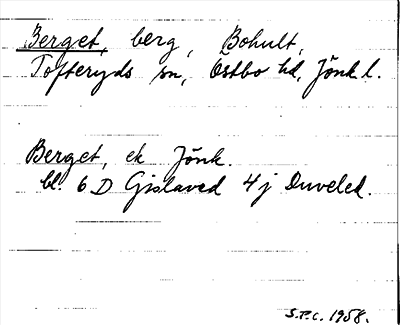 Berget, berg, Bohult,
Tofteryds sn, Östbo hd, Jönk l.
Berget, ek Jönk.
bl. 6 D Gislaved 4 j Duveled.
S.P.C. 1958.